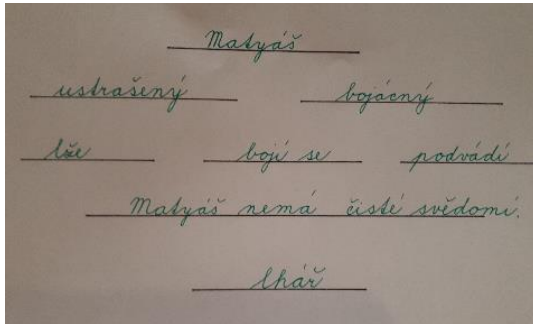 Matyáš
ustrašený bojácný
lže bojí se podvádí
Matyáš nemá čisté svědomí.
lhář